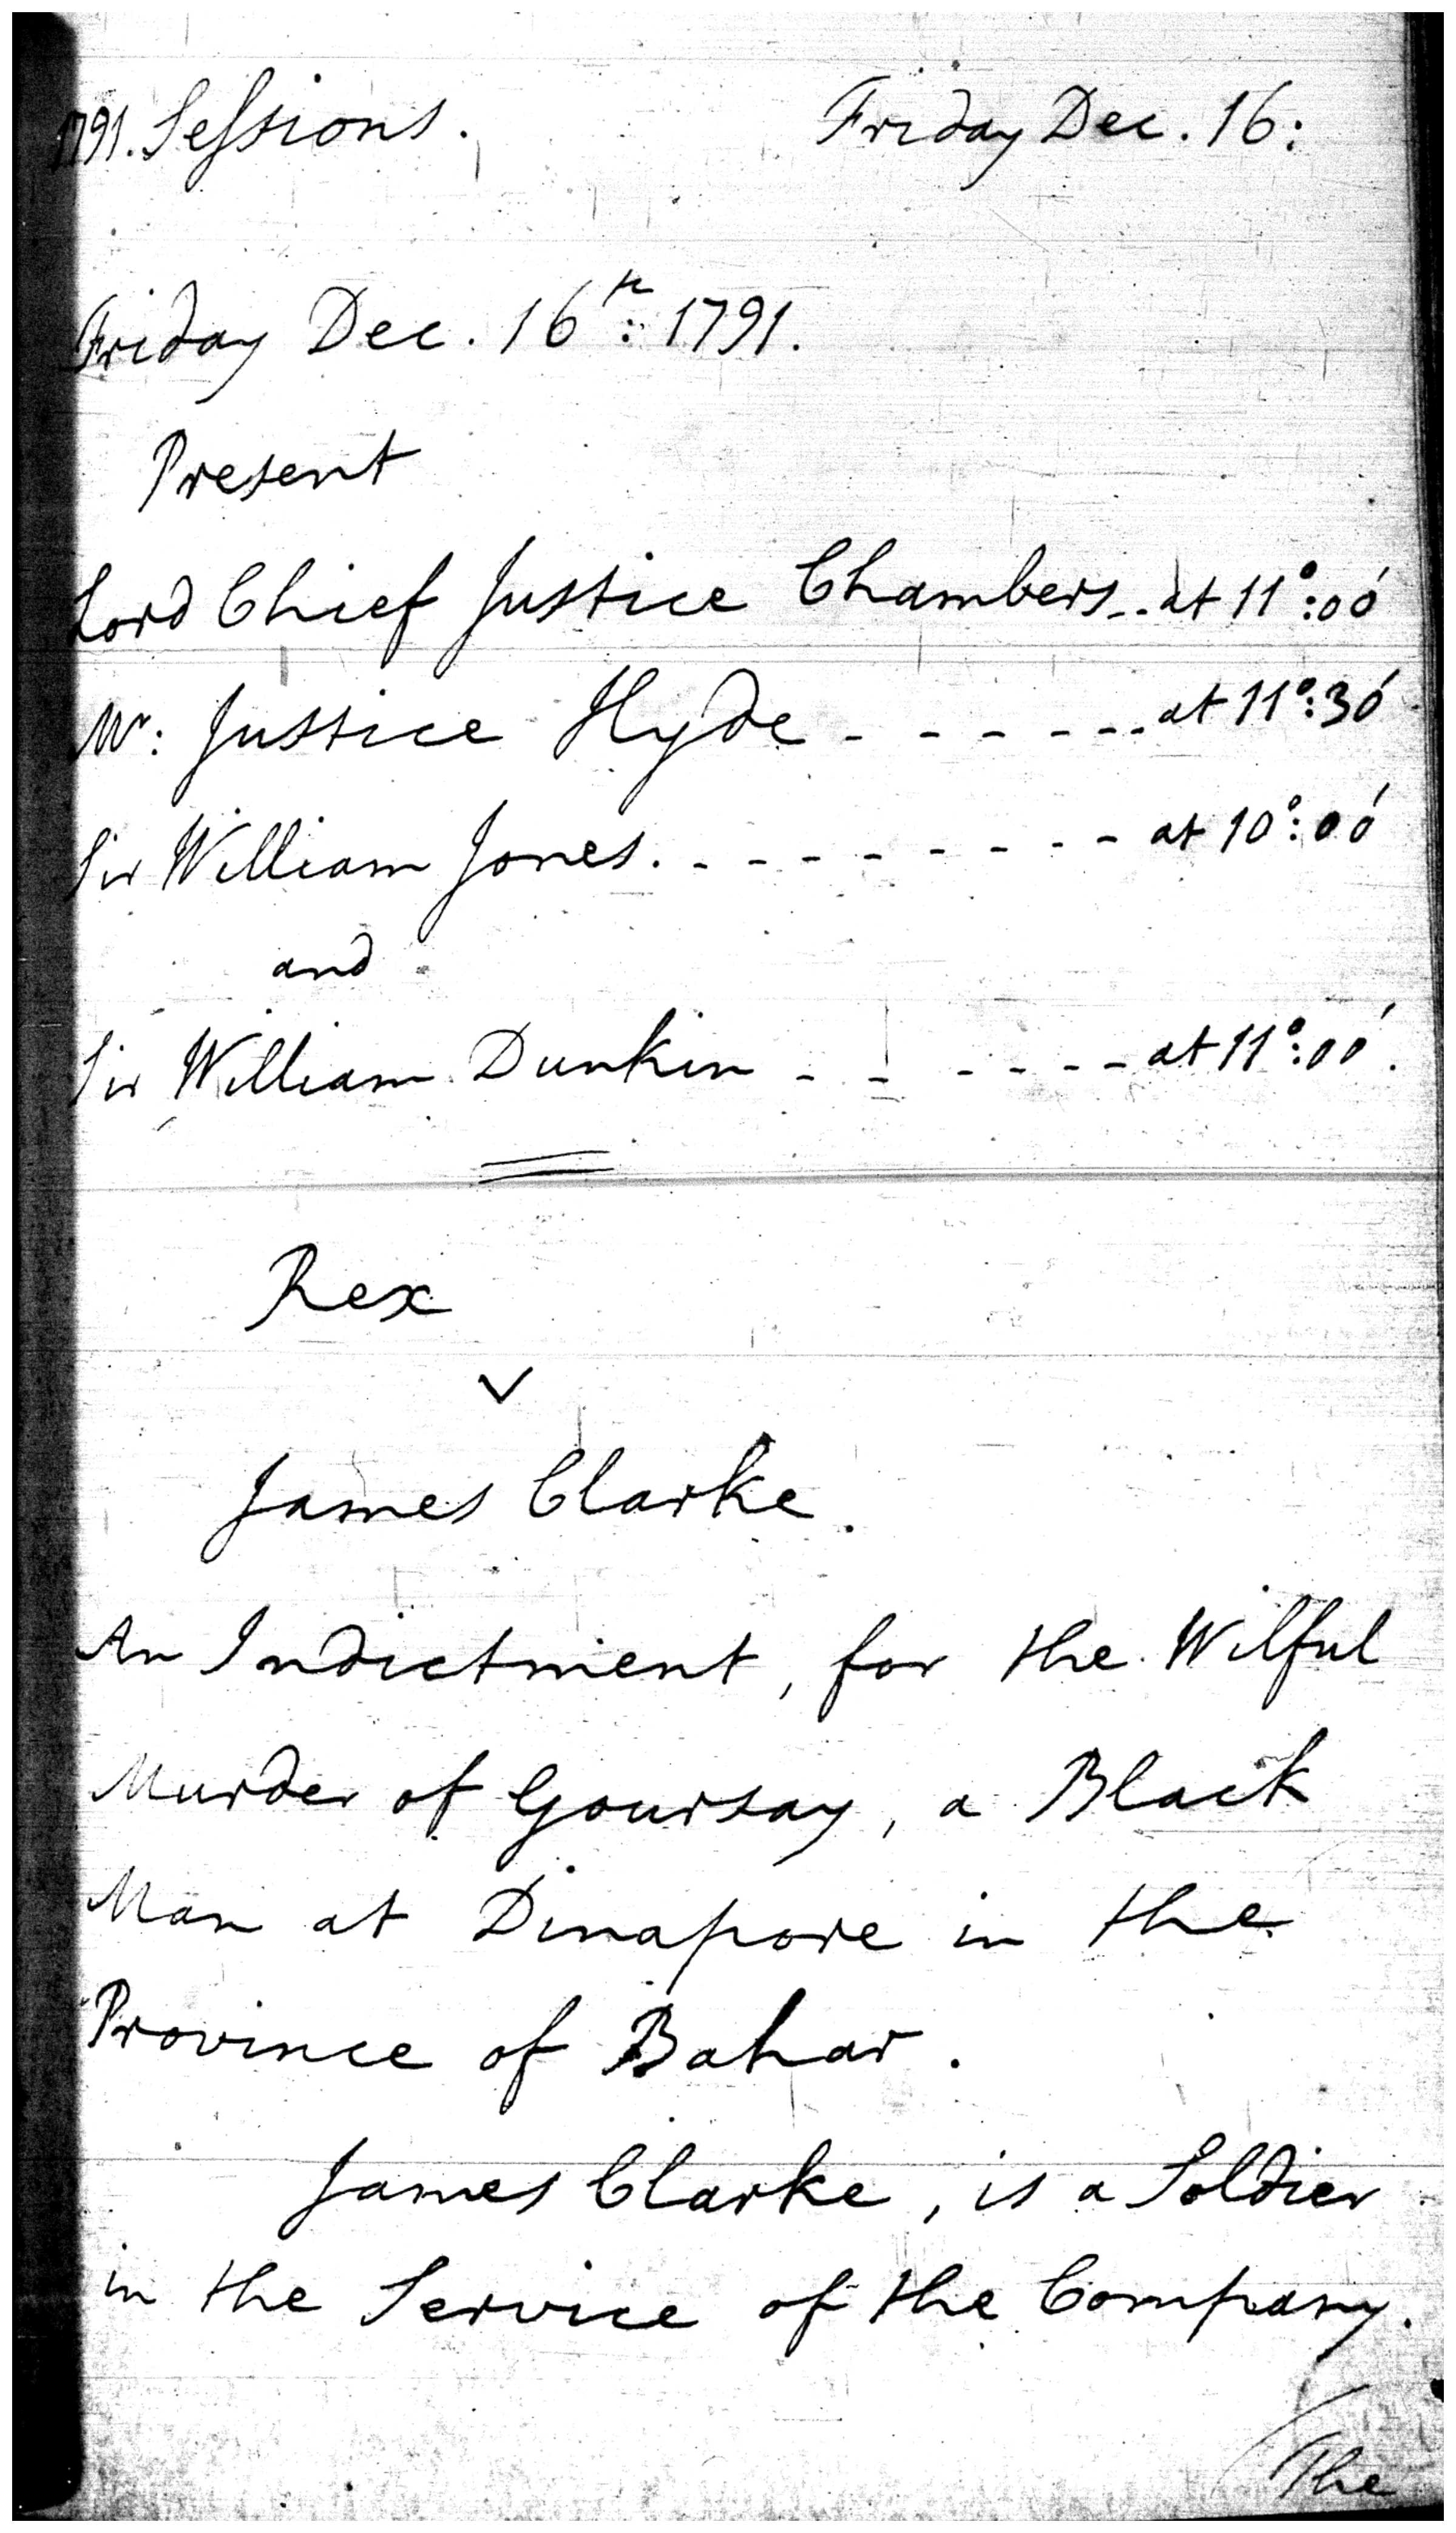 1791. Sessions. Friday Dec. 16:
Friday Dec. 16th: 1791.
Present
Lord Chief Justice Chambers.. at 11°:00'
Mr: Justice Hyde - - - - - - - at 11°:30'
Sir William Jones. - - - - - - - - - at 10°:00'
and
Sir William Dunkin - - - - - - - at 11°:00'.
Rex
v
James Clarke.
An Indictment, for the Wilful
Murder of Goursay, a Black
Man at Dinapore in the
Province of Bahar.
James Clarke, is a Soldier
in the Service of the Company.
/The